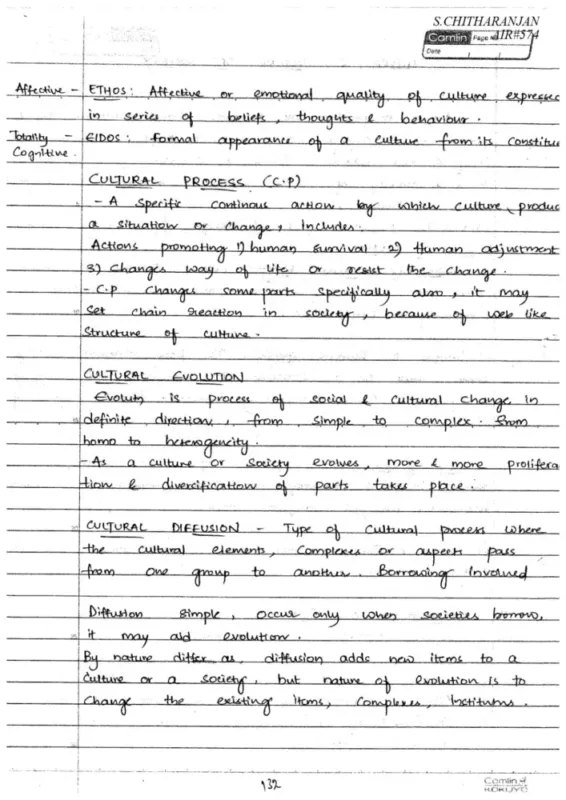 S.CHITHARANJAN
Camlin Page No. AIR#574
Date / /
Affective - ETHOS : Affective or emotional quality of culture expressed
in series of beliefs, thoughts & behaviour.
Totality - EIDOS : formal appearance of a culture from its constitue
Cognitive.
CULTURAL PROCESS (C.P)
- A specific continous action by which culture produc
a situation or change, includes.
Actions promoting 1) human survival 2) Human adjustment
3) Changes way of life or resist the change.
- C.P changes some parts specifically also, it may
set chain reaction in society, because of web like
structure of culture.
CULTURAL EVOLUTION
Evolutn is process of social & cultural change in
definite direction, from simple to complex. from
homo to heterogeneity.
- As a culture or society evolves, more & more prolifera
tion & divercification of parts takes place.
CULTURAL DIFFUSION - Type of cultural process where
the cultural elements, complexes or aspects pass
from one group to another. Borrowing involved
Diffusion simple, occur only when societies borrow,
it may aid evolution.
By nature differ as, diffusion adds new items to a
culture or a society, but nature of evolution is to
change the existing items, complexes, institutns.
132
Camlin
KOKUYO